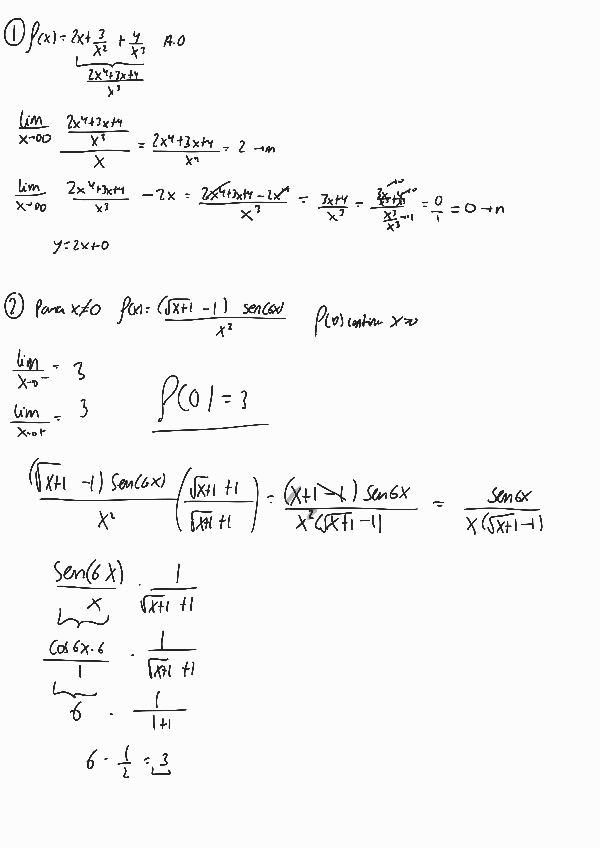 ① f(x) = 2x + 3/x² + 4/x³ A.O
(2x⁴+3x+4)/x³
lim x→∞ ((2x⁴+3x+4)/x³)/x = (2x⁴+3x+4)/x⁴ = 2 → m
lim x→∞ (2x⁴+3x+4)/x³ - 2x = (2x⁴+3x+4-2x⁴)/x³ = (3x+4)/x³ = (3x/x³+4/x³)/(x³/x³) →0 →0 →1 = 0/1 = 0 → n
y = 2x+0
② Para x≠0 f(x) = (√(x+1) - 1) sen(6x) / x² f(0) x=0
lim x→0⁻ = 3
lim x→0+ = 3
f(0) = 3
(√(x+1) - 1) sen(6x) / x² (√(x+1) + 1 / √(x+1) + 1) = (x+1-1) sen6x / x²(√(x+1) - 1) = sen6x / x(√(x+1) - 1)
Sen(6x)/x · 1/(√(x+1) + 1)
Cos6x·6/1 · 1/(√(x+1) + 1)
6 · 1/(1+1)
6 · 1/2 = 3